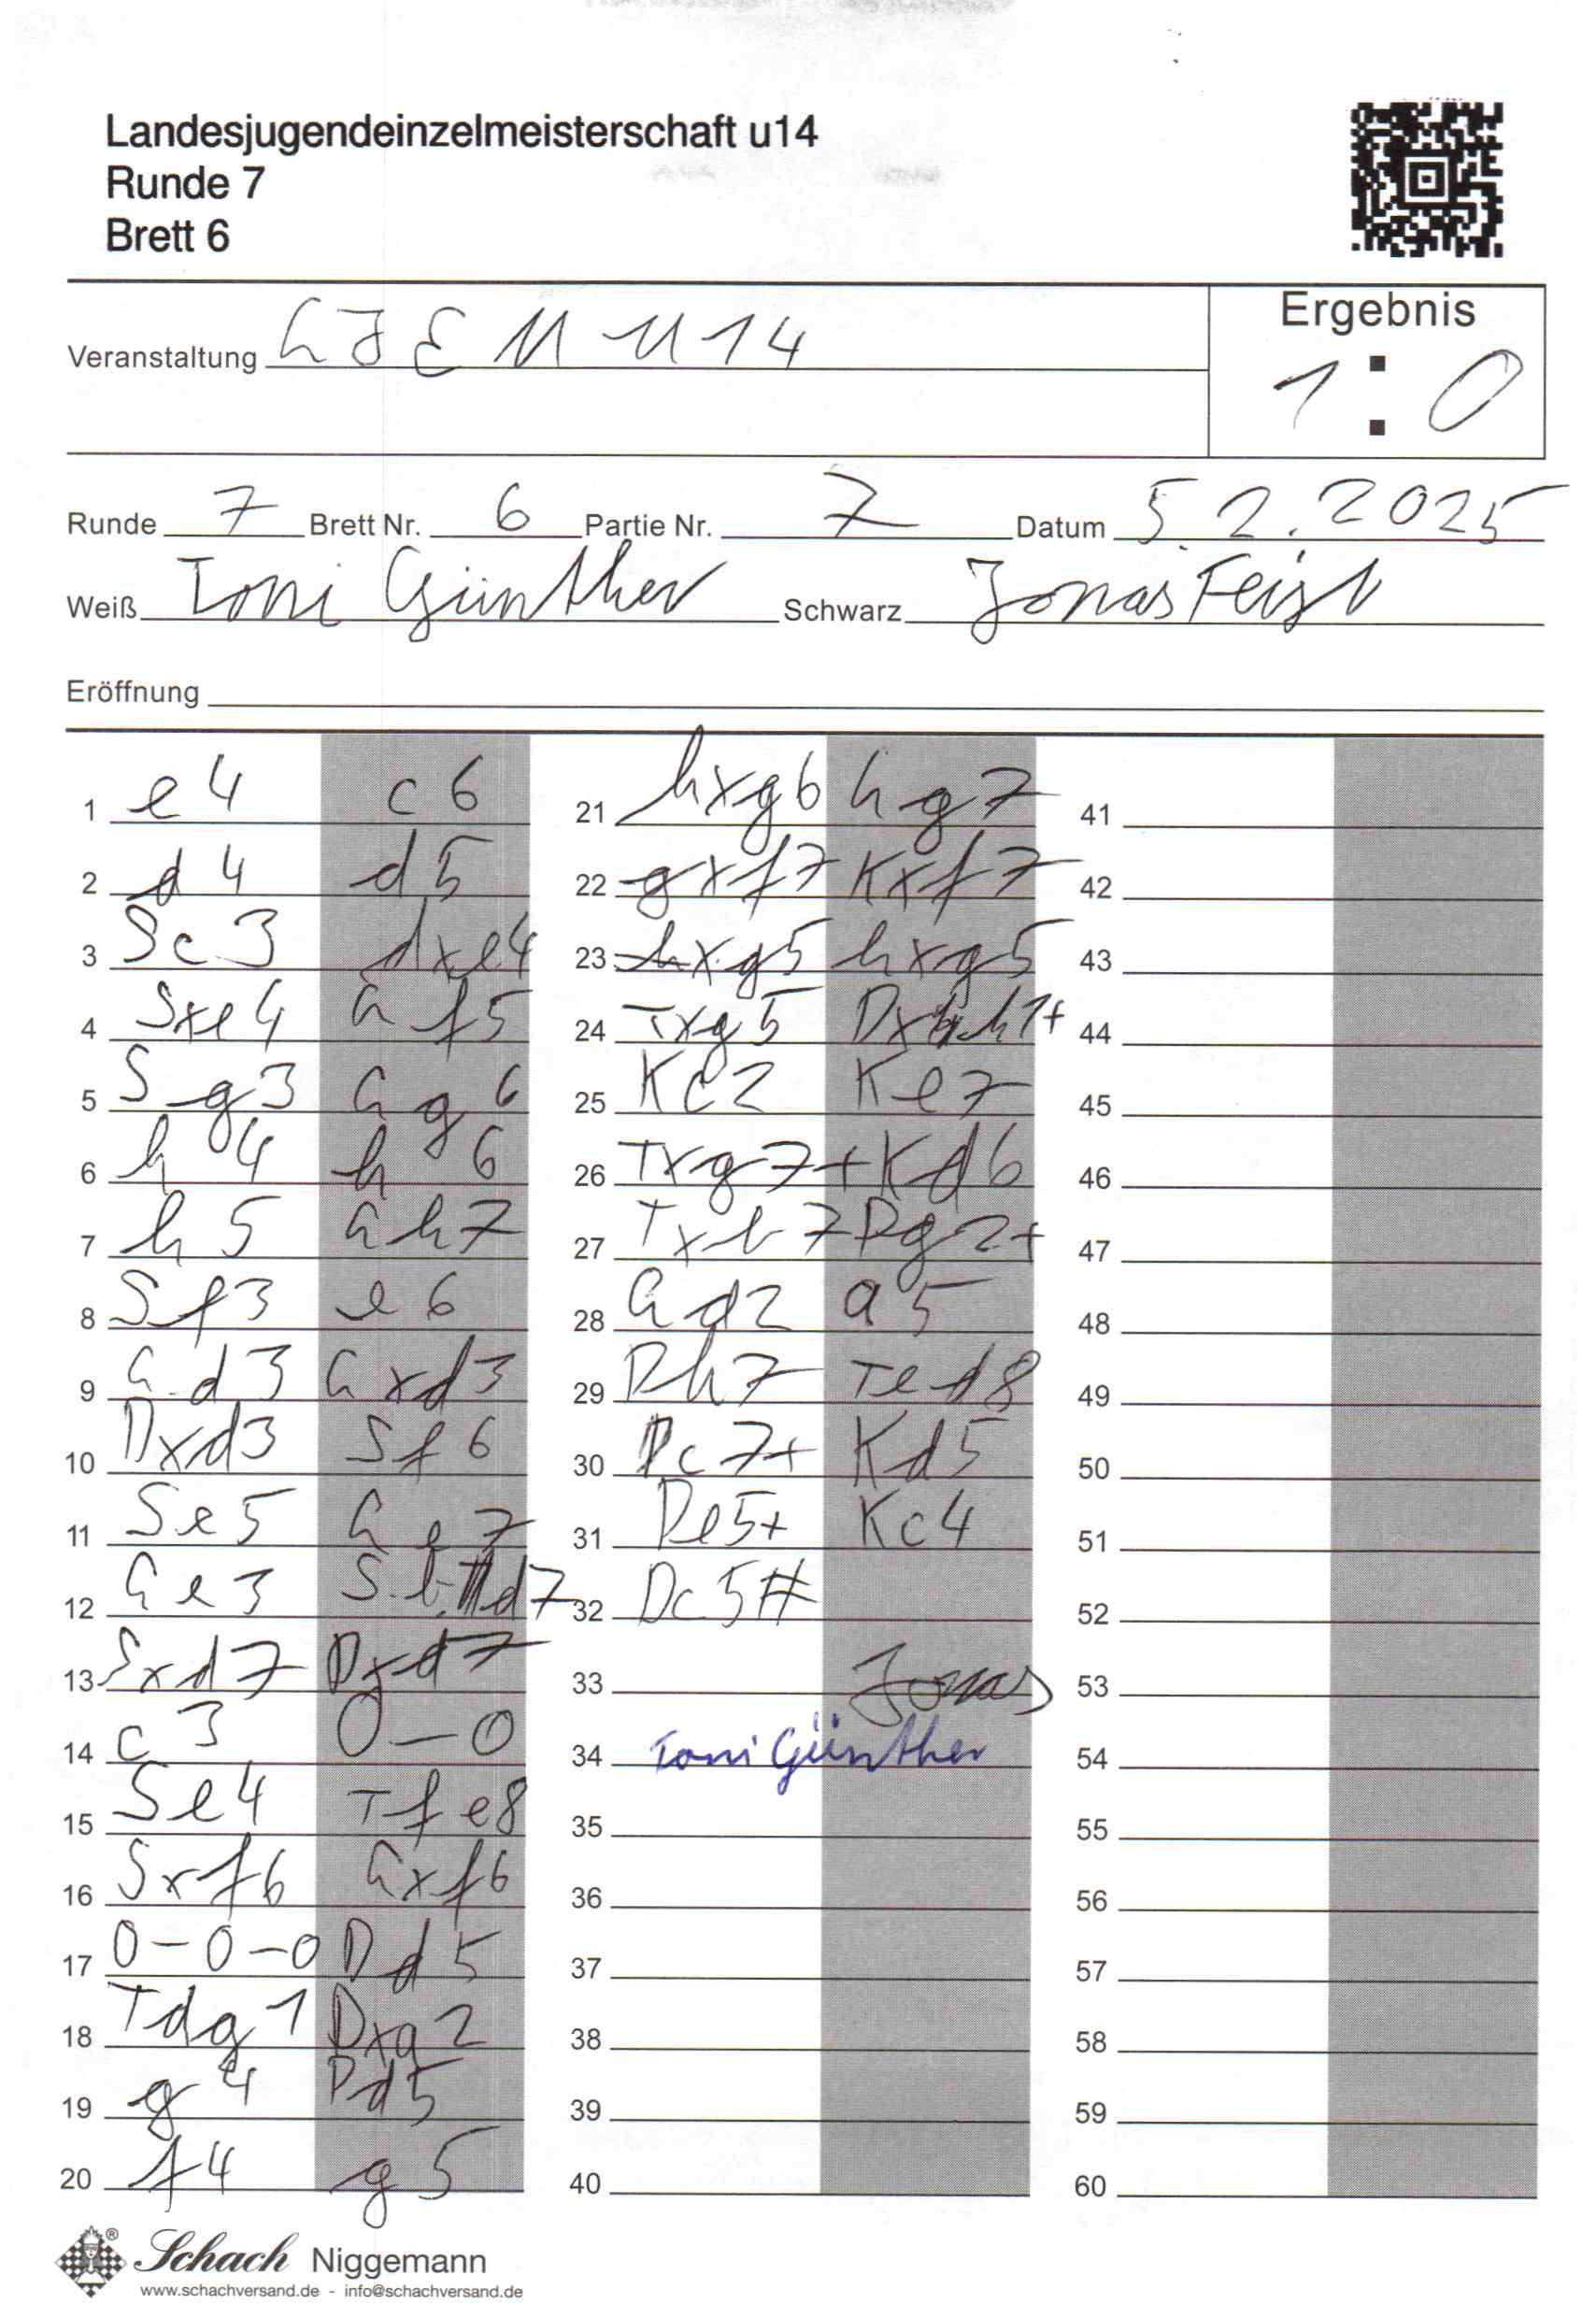 Landesjugendeinzelmeisterschaft u14
Runde 7
Brett 6
Veranstaltung LJEM U14
Ergebnis
1 : 0
Runde 7 Brett Nr. 6 Partie Nr. 7 Datum 5.2.2025
Weiß Toni Günther Schwarz Jonas Feist
Eröffnung
1 e4 c6
2 d4 d5
3 Sc3 dxe4
4 Sxe4 Lf5
5 Sg3 Lg6
6 h4 h6
7 h5 Lh7
8 Sf3 e6
9 Ld3 Lxd3
10 Dxd3 Sf6
11 Se5 Le7
12 Le3 Sbd7
13 Sxd7 Dxd7
14 c3 0-0
15 Se4 Tfe8
16 Sxf6 Lxf6
17 0-0-0 Dd5
18 Tdg1 Dxa2
19 g4 Dd5
20 f4 g5
21 hxg6 Lg7
22 gxf7 Kxf7
23 hxg5 hxg5
24 Txg5 Dxh1+
25 Kc2 Ke7
26 Txg7+ Kd6
27 Txb7 Dg2+
28 Ld2 a5
29 Dh7 Ted8
30 Dc7+ Kd5
31 De5+ Kc4
32 Dc5#
33 Jonas
34 Toni Günther
35
36
37
38
39
40
41
42
43
44
45
46
47
48
49
50
51
52
53
54
55
56
57
58
59
60
Schach Niggemann
www.schachversand.de - info@schachversand.de